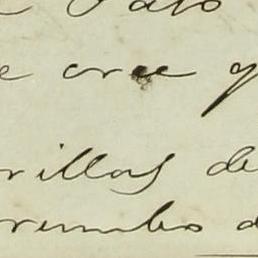 e cree q
rillas de
rumbo d